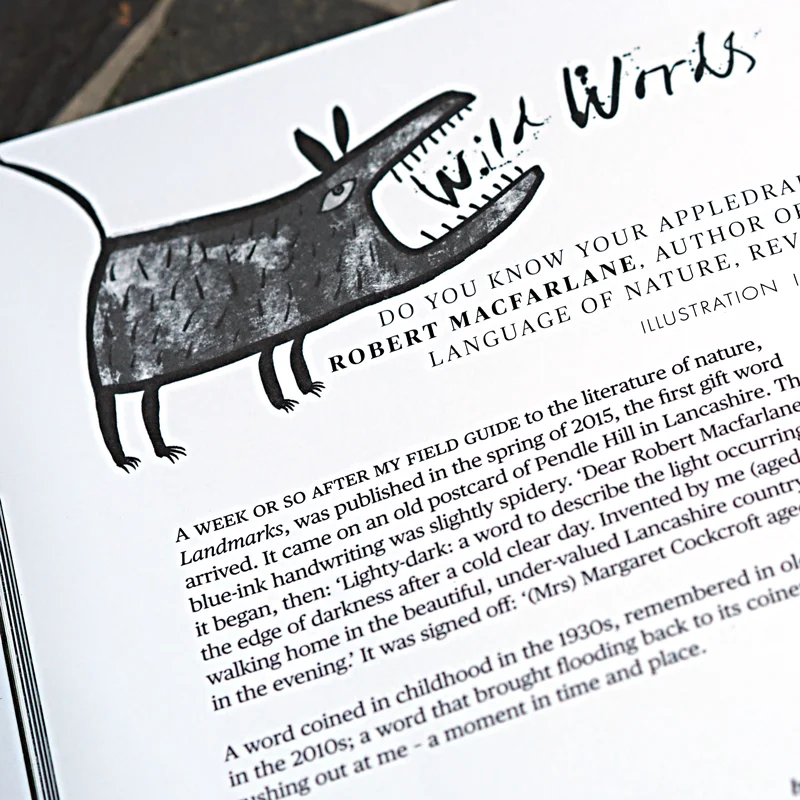 Wild Words
DO YOU KNOW YOUR
ROBERT MACFARLANE, AUTHOR
LANGUAGE OF NATURE,
ILLUSTRATION
A WEEK OR SO AFTER MY FIELD GUIDE to the literature of nature,
Landmarks, was published in the spring of 2015, the first gift word
arrived. It came on an old postcard of Pendle Hill in Lancashire.
blue-ink handwriting was slightly spidery. ‘Dear Robert Macfarlane
it began, then: ‘Lighty-dark: a word to describe the light occurring
the edge of darkness after a cold clear day. Invented by me (aged
walking home in the beautiful, under-valued Lancashire country
in the evening.’ It was signed off: ‘(Mrs) Margaret Cockcroft
A word coined in childhood in the 1930s, remembered in
in the 2010s; a word that brought flooding back to its
out at me – a moment in time and place.